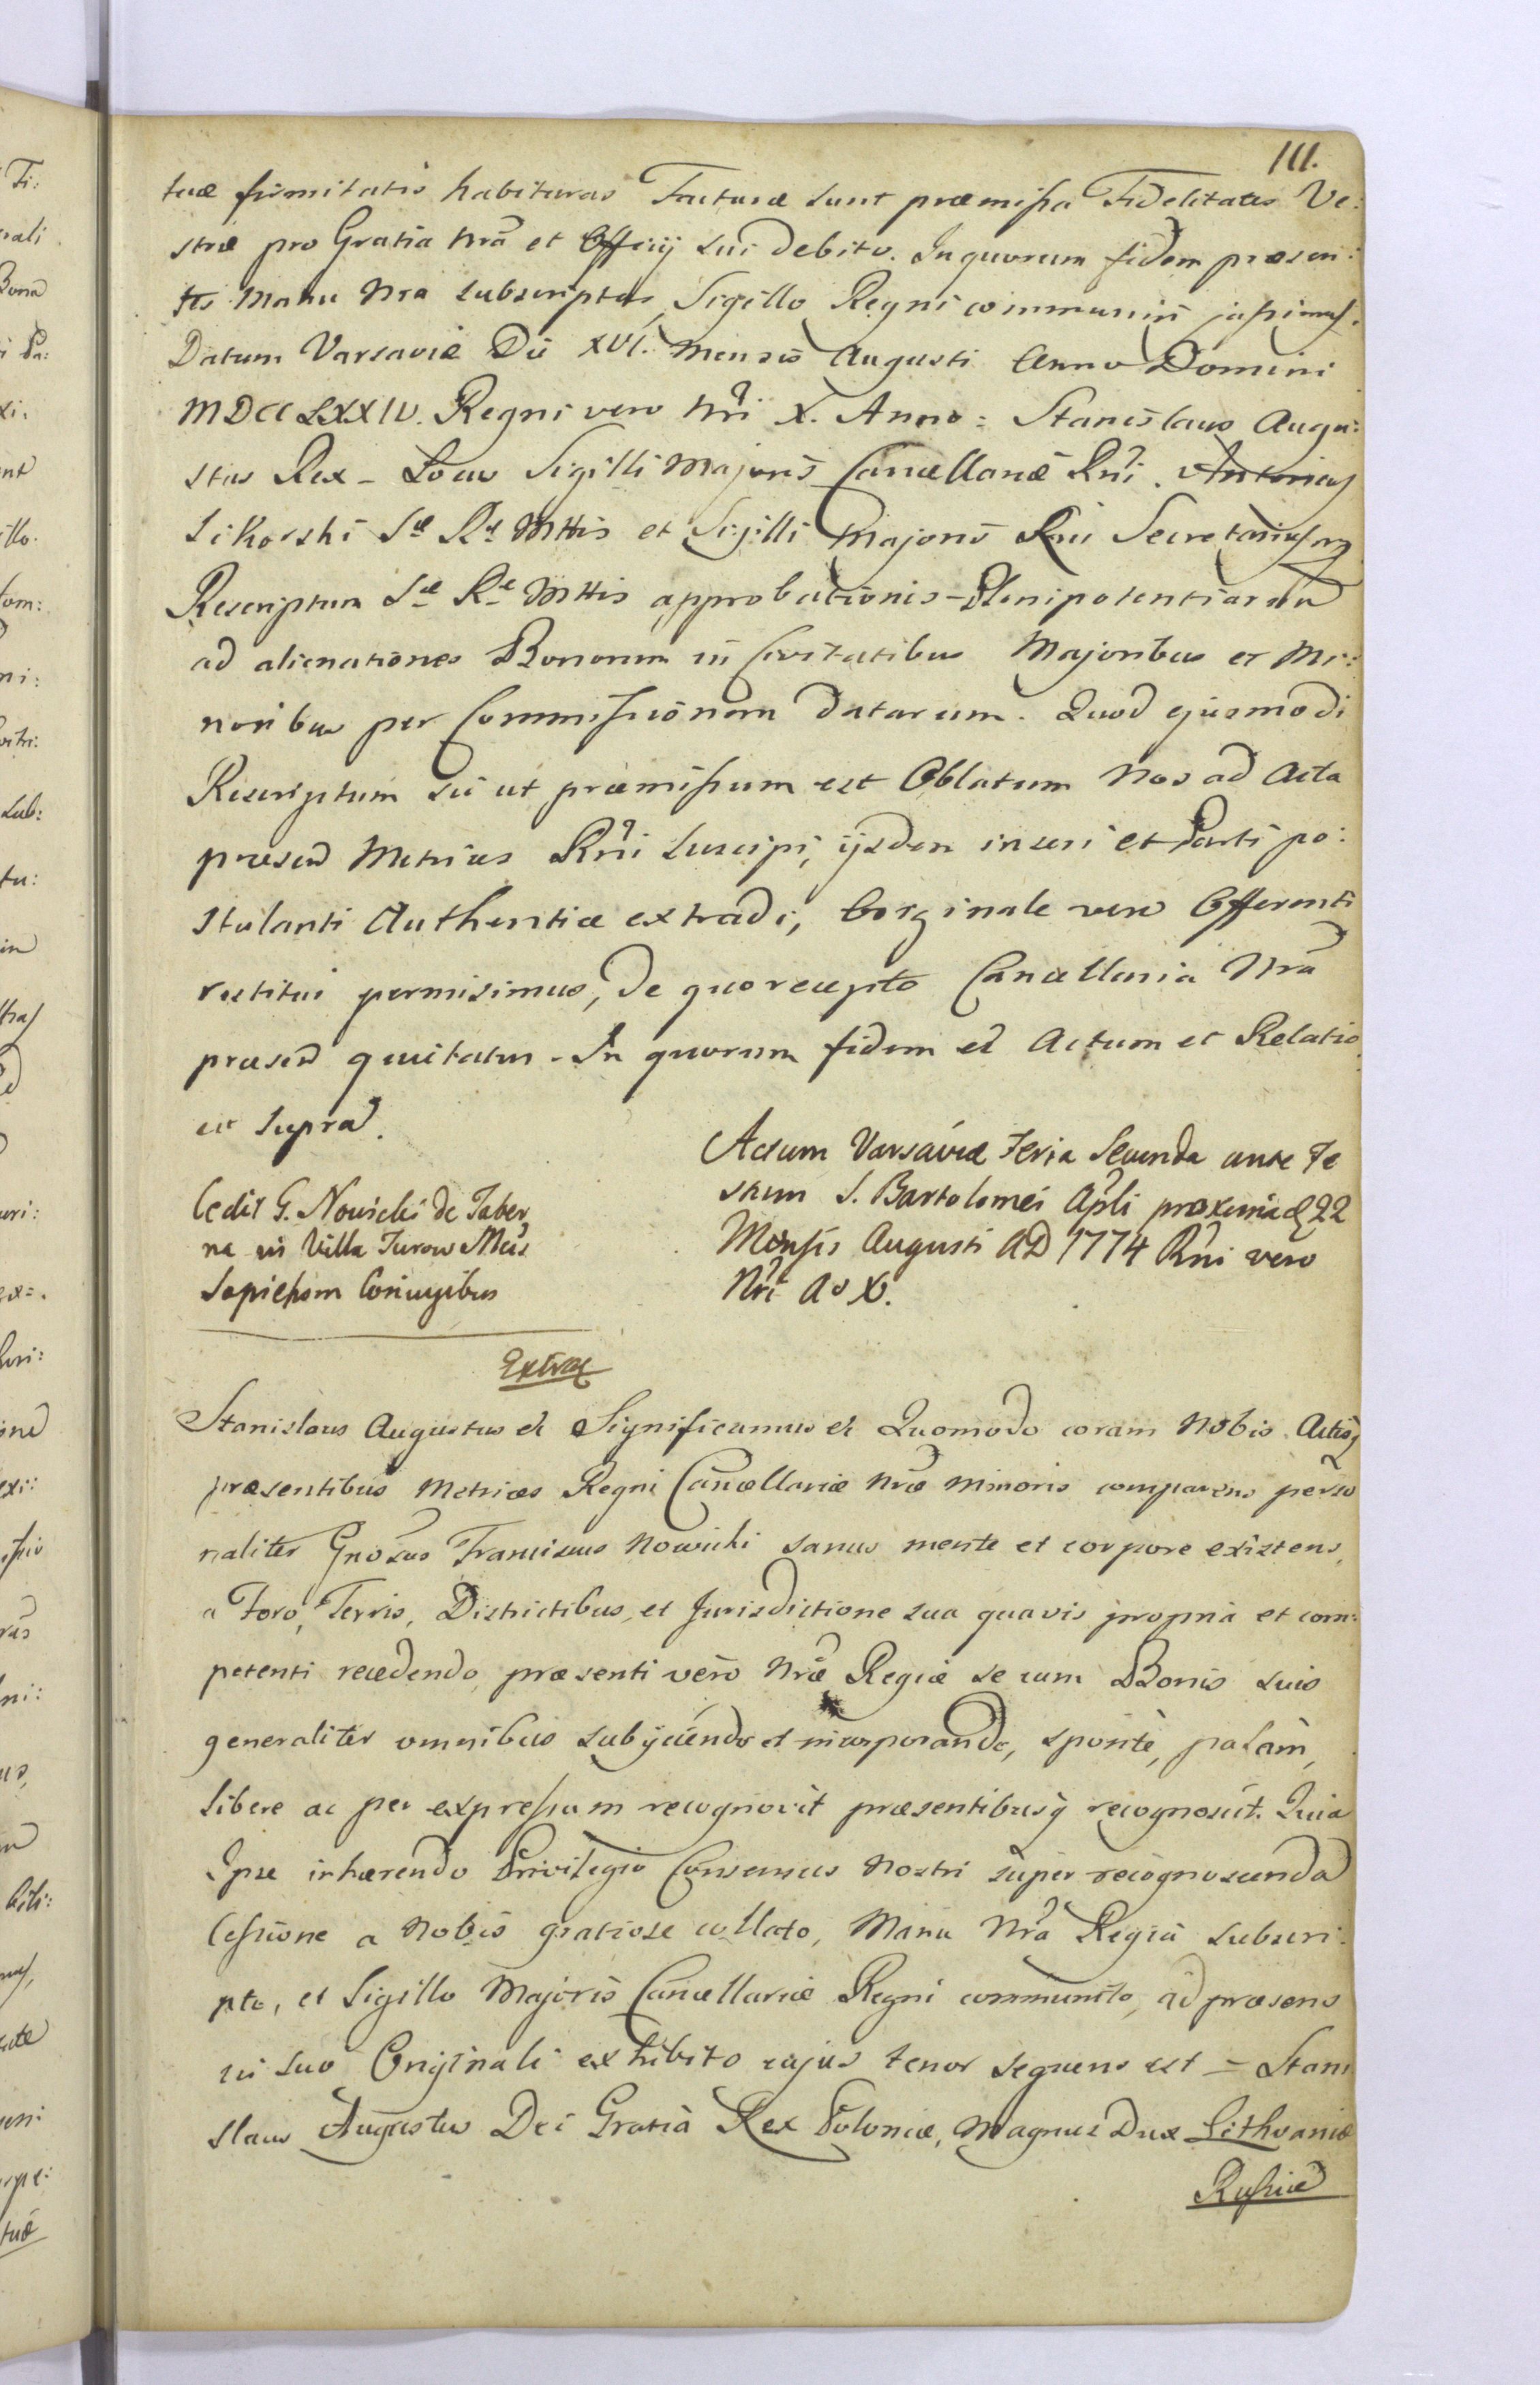 111.
tuæ firmitatis habituras Facturæ sunt præmissa Fidelitates Ve:
stræ pro Gratia Nrã et Officij sui debito. In quorum fidem præsen:
tes Manu Nra subscriptas, Sigillo Regni communiri jussimus.
Datum Varsaviæ Die XVI. Mensis Augusti Anno Domini
MDCCLXXIV. Regni vero Nri X. Anno = Stanislaus Augu:
stus Rex - Locus Sigilli Majoris Cancellariæ Rni. Antonius
Sikorski Sæ Ræ Mttis et Sigilli Majoris Rni Secretarius
Rescriptum Sæ Ræ Mttis approbationis Plenipotentiarum
ad alienationes Bonorum in Civitatibus Majoribus et Mi:
noribus per Commissionem datarum. Quod ejusmodi
Rescriptum sic ut præmissum est Oblatum Nos ad Acta
præsen Metrices Rni suscipi, ijsdem inseri et Parti po:
stulanti Authentice extradi, Originale vero Offerenti
restitui permisimus, de quo recepto Cancellaria Nra
præsen quietatur. In quorum fidem et Actum et Relatio
ut supra.
Actum Varsaviæ Feria Secunda ante Fe
stum S. Bartolomei Apli proxima d 22
Mensis Augusti AD 1774 Rni vero
Nri Ao X.
Cedit G. Nowicki de Taber
na in Villa Turow Mcis
Sapiehom Coniugibus
Extrad
Stanislaus Augustus et Significamus et Quomodo coram Nobis Actisq
præsentibus Metrices Regni Cancellariæ Nræ Minoris comparens perso
naliter Gnosus Franciscus Nowicki sanus mente et corpore existens,
a Foro, Terris, Districtibus, et Jurisdictione sua quavis propria et com:
petenti recedendo, præsenti vero Nræ Regiæ se cum Bonis suis
generaliter omnibus subijciendo et incorporando, sponte, palam,
libere ac per expressum recognovit præsentibusq recognoscit. Quia
Ipse inhærendo Privilegio Consensus Nostri super recognoscenda
Cessione a Nobis gratiose collato, Manu Nra Regia subscri:
pto, et Sigillo Majoris Cancellariæ Regni communito, ad præsens
in suo Originali exhibito cujus tenor sequens est = Stani
slaus Augustus Dei Gratia Rex Poloniæ, Magnus Dux Lithvaniæ
Russiæ